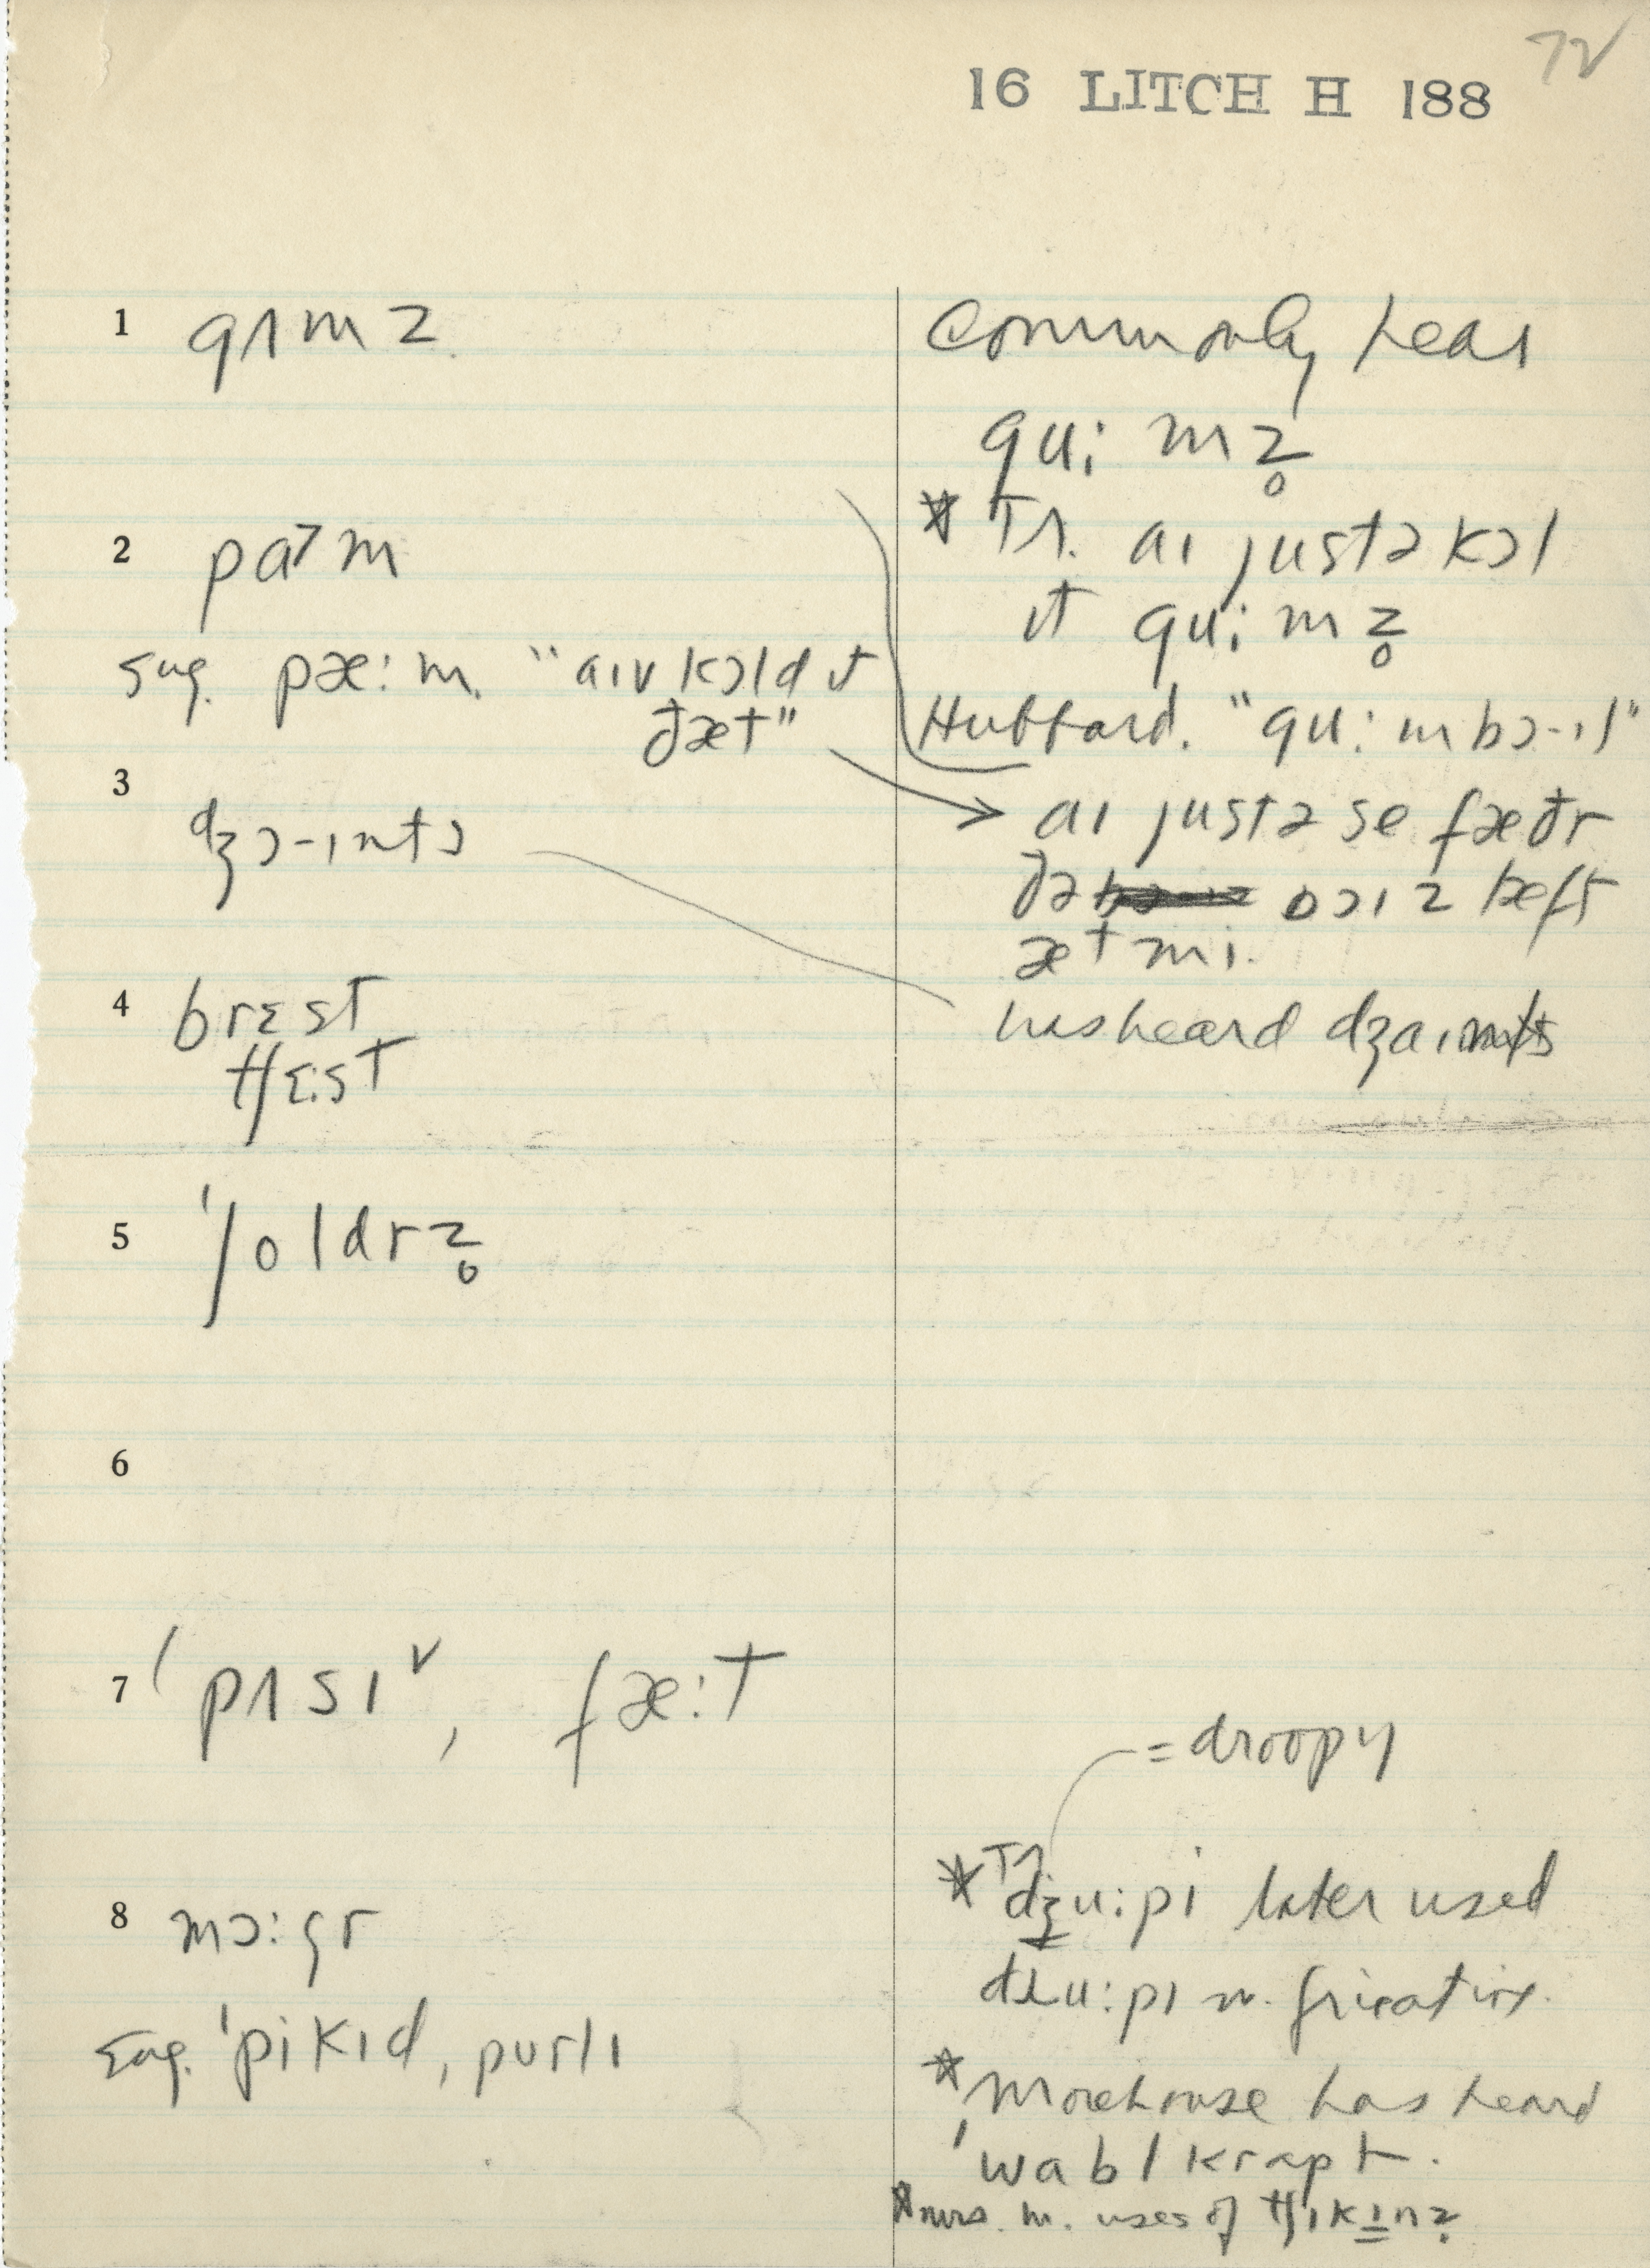 72
16 LITCH H 188
1 gʌmz
commonly hear
gu: mz̥
* Tr. aɪ justə kɔl
ɪt gu: mz̥
2 pa˃m
sug. pæ: m. "aɪv kɔld ɪt
ðæt"
Hubbard. "gu: mbɔ-ɪl"
3 dʒɔ-ɪnts
aɪ justə se fæðr
ðə bɔɪz hæft
æt mi.
4 brɛst
tʃɛ:st
has heard dʒaɪnts
5 ˈʃoldrz̥
6
7 ˈpʌsɪ˅, fæ:t
= droopy
8 mɔ:gr
*Tr dʒu:pi later used
dɹu:pɪ w. fricative.
sug. ˈpikɪd, purlɪ
*Morehouse has heard
ˈwablkrapt.
*mrs. m. uses of tʃɪkɪnz